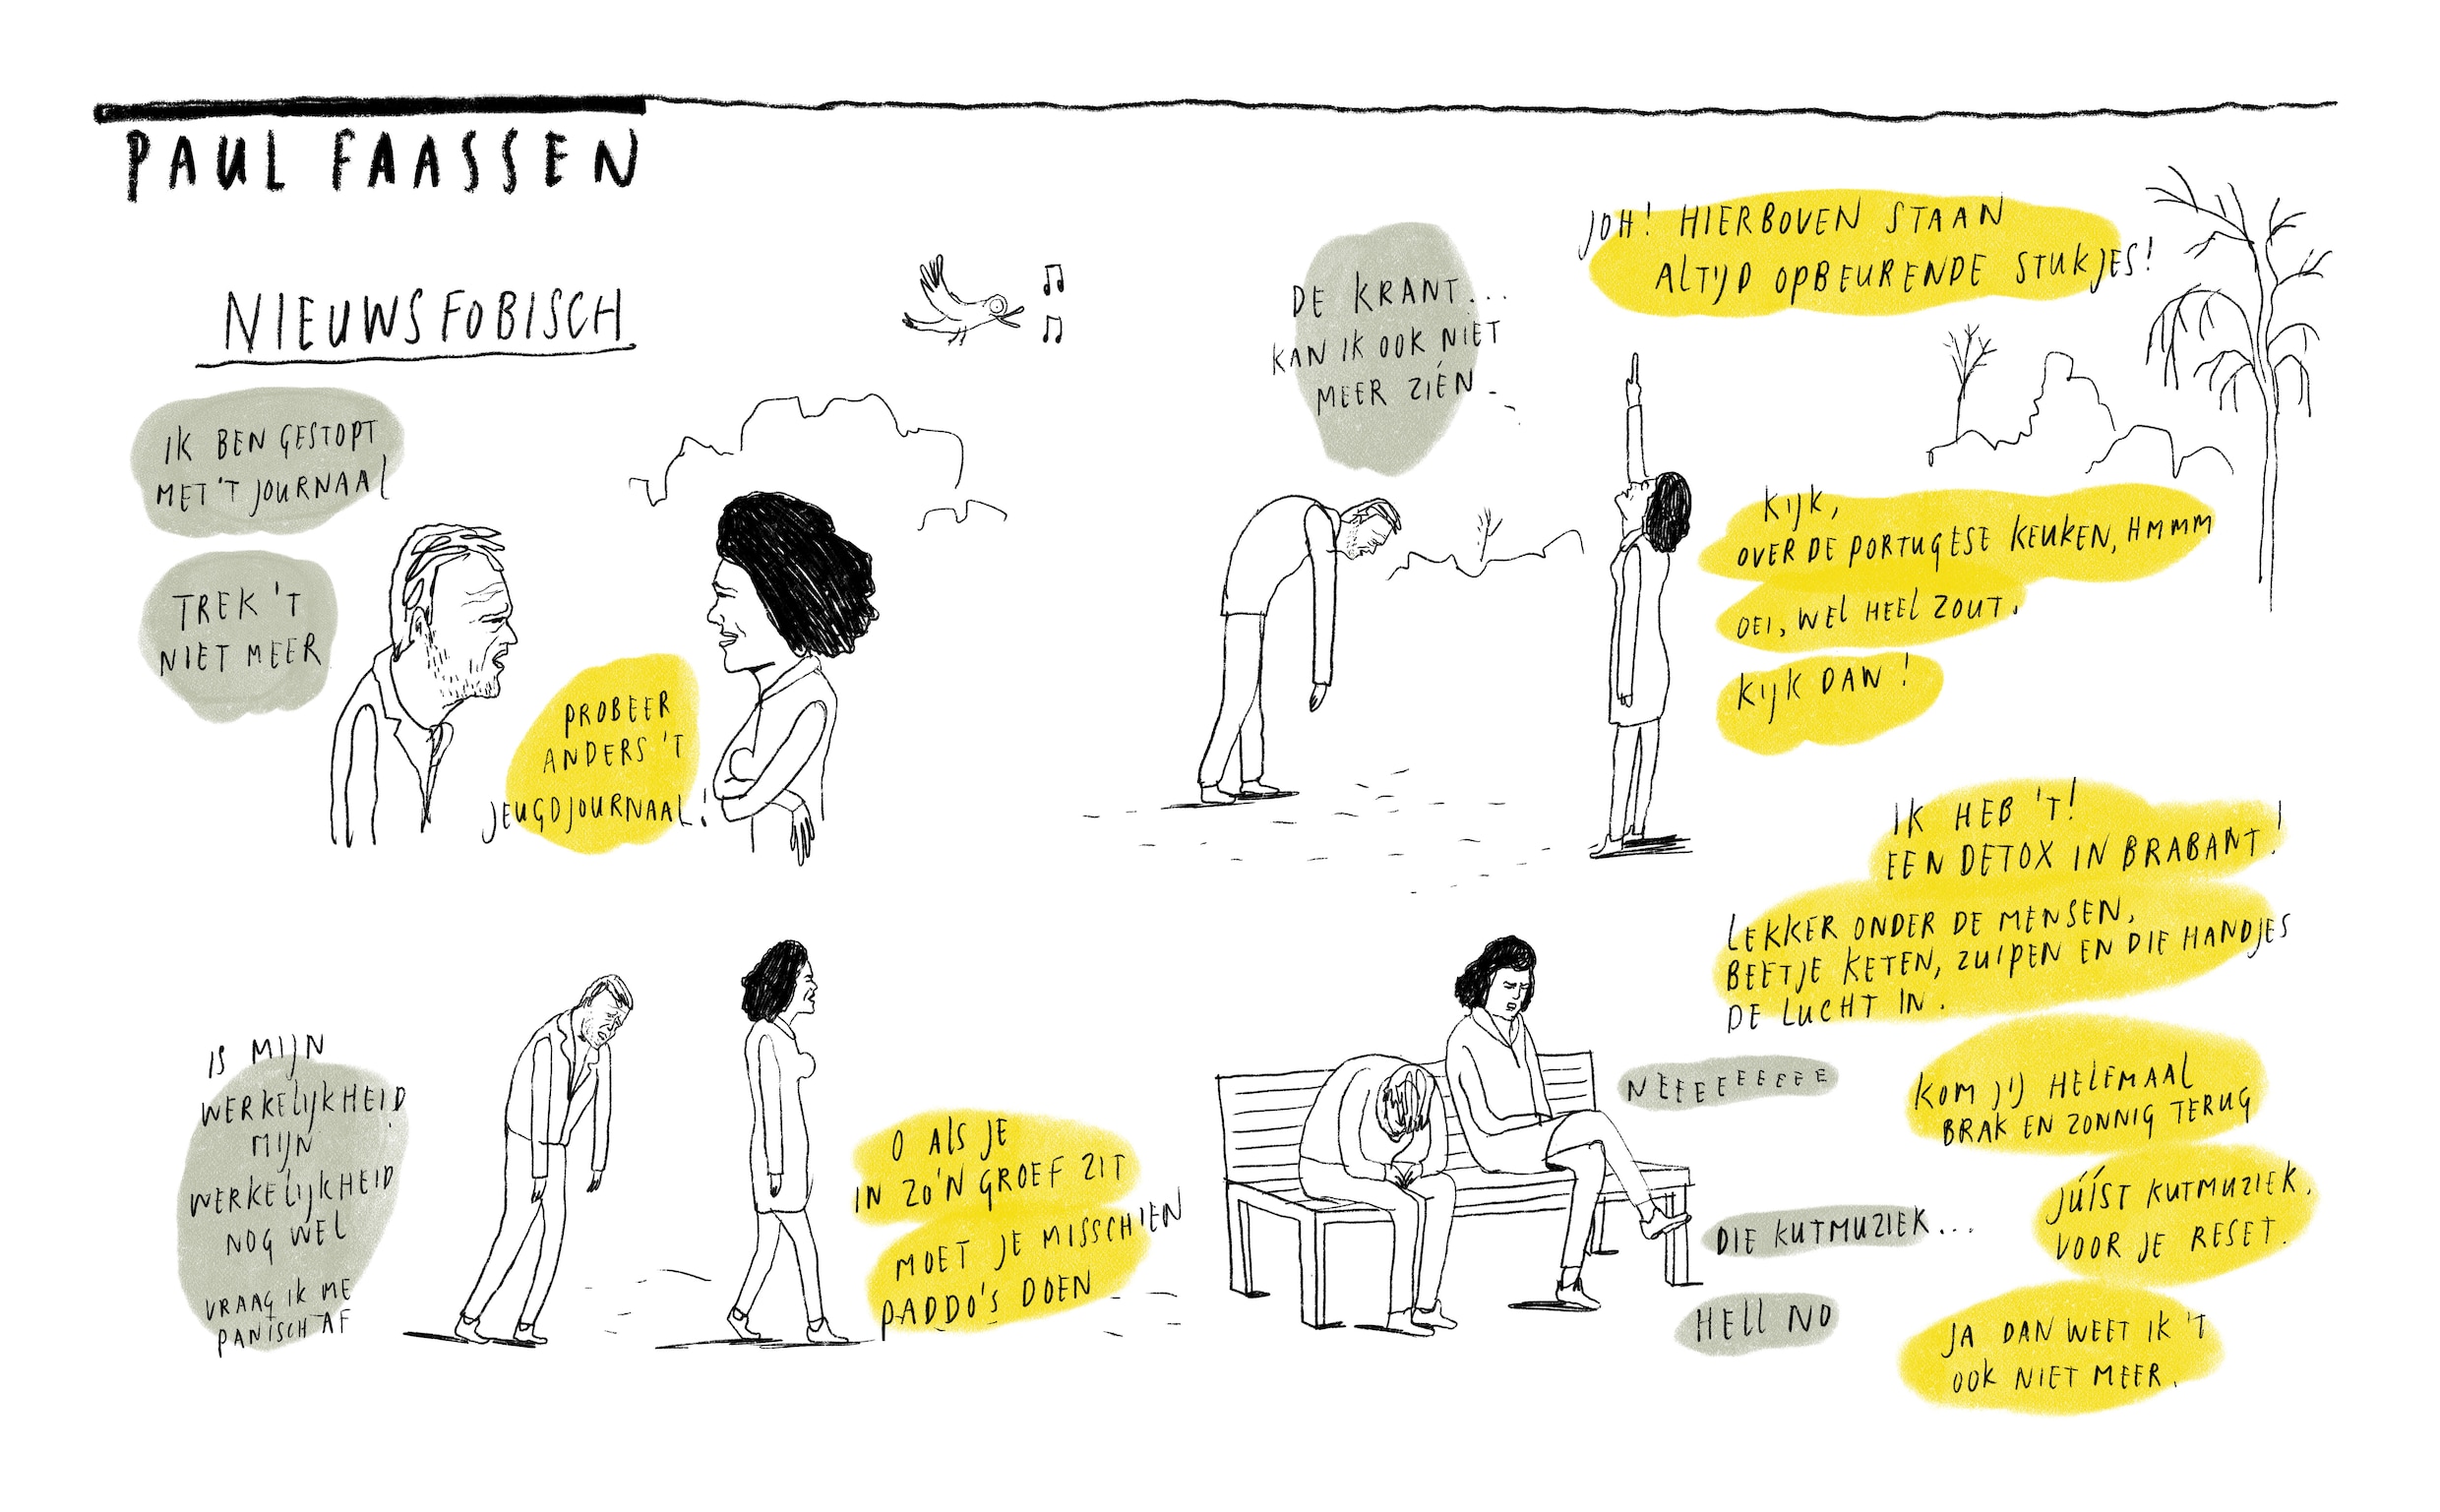 PAUL FAASSEN
NIEUWSFOBISCH
IK BEN GESTOPT
MET 'T JOURNAAL
TREK 'T
NIET MEER
PROBEER
ANDERS 'T
JEUGDJOURNAAL!
DE KRANT...
KAN IK OOK NIET
MEER ZIÉN...
JOH! HIERBOVEN STAAN
ALTIJD OPBEURENDE STUKJES!
KIJK,
OVER DE PORTUGESE KEUKEN, HMMM
OEI, WEL HEEL ZOUT.
KIJK DAN!
IS MIJN
WERKELIJKHEID
MIJN
WERKELIJKHEID
NOG WEL
VRAAG IK ME
PANISCH AF
O ALS JE
IN ZO'N GROEF ZIT
MOET JE MISSCHIEN
PADDO'S DOEN
IK HEB 'T!
EEN DETOX IN BRABANT!
LEKKER ONDER DE MENSEN,
BEETJE KETEN, ZUIPEN EN DIE HANDJES
DE LUCHT IN.
NEEEEEEEE
KOM JIJ HELEMAAL
BRAK EN ZONNIG TERUG
DIE KUTMUZIEK...
JÚÍST KUTMUZIEK.
VOOR JE RESET.
HELL NO
JA DAN WEET IK 'T
OOK NIET MEER.